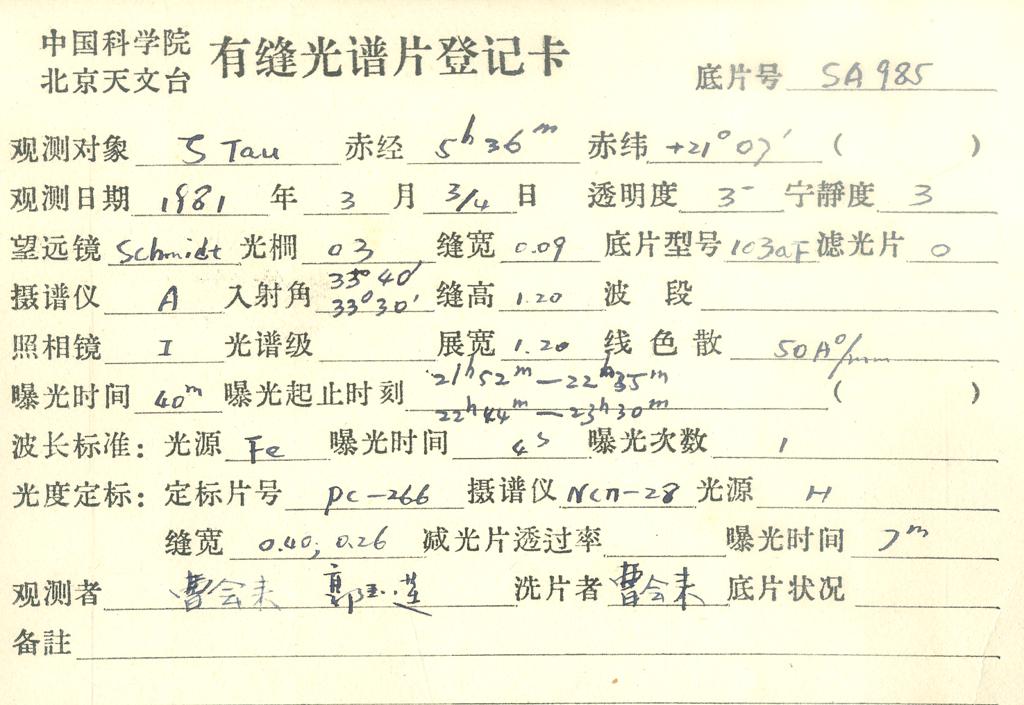 中国科学院
北京天文台 有缝光谱片登记卡 底片号 SA985
观测对象 ζ Tau 赤经 5h36m 赤纬 +21°07′ ( )
观测日期 1981 年 3 月 3/4 日 透明度 3- 宁静度 3
望远镜 Schmidt 光栅 03 缝宽 0.09 底片型号 103aF 滤光片 0
摄谱仪 A 入射角 33°40′ 33°30′ 缝高 1.20 波段
照相镜 I 光谱级 展宽 1.20 线色散 50A°/mm
曝光时间 40m 曝光起止时刻 21h52m—22h35m ( )
22h44m—23h30m
波长标准: 光源 Fe 曝光时间 4s 曝光次数 1
光度定标: 定标片号 pc-266 摄谱仪 光源 H
缝宽 0.40; 0.26 减光片透过率 曝光时间 7m
观测者 曹会来 洗片者 曹会来 底片状况
备註